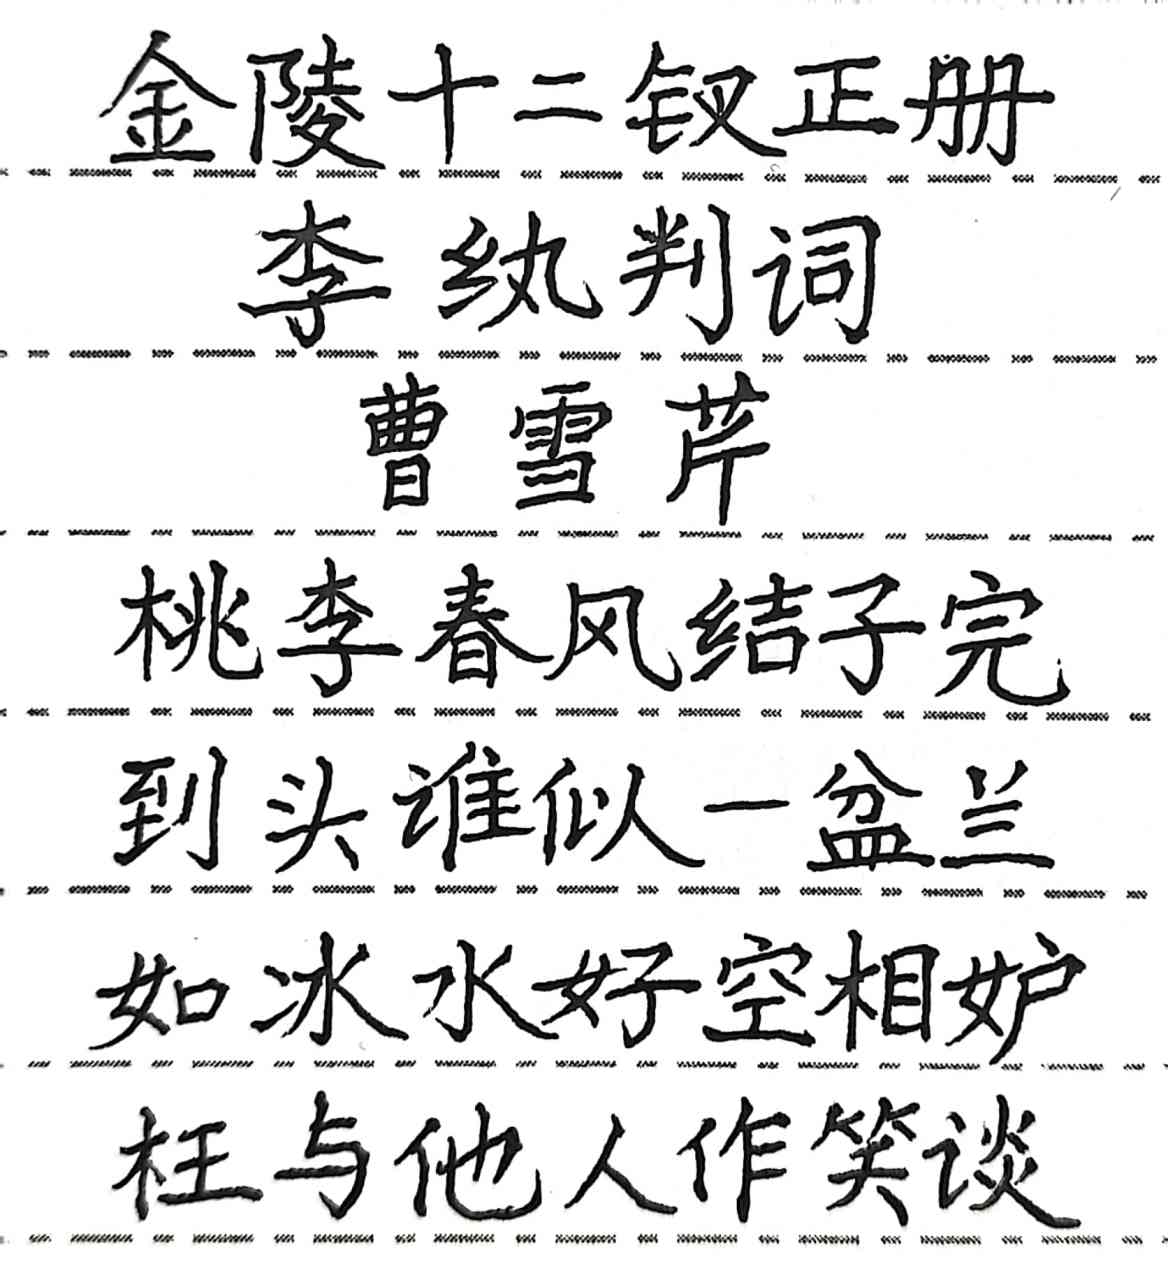 金陵十二钗正册
李纨判词
曹雪芹
桃李春风结子完
到头谁似一盆兰
如冰水好空相妒
枉与他人作笑谈